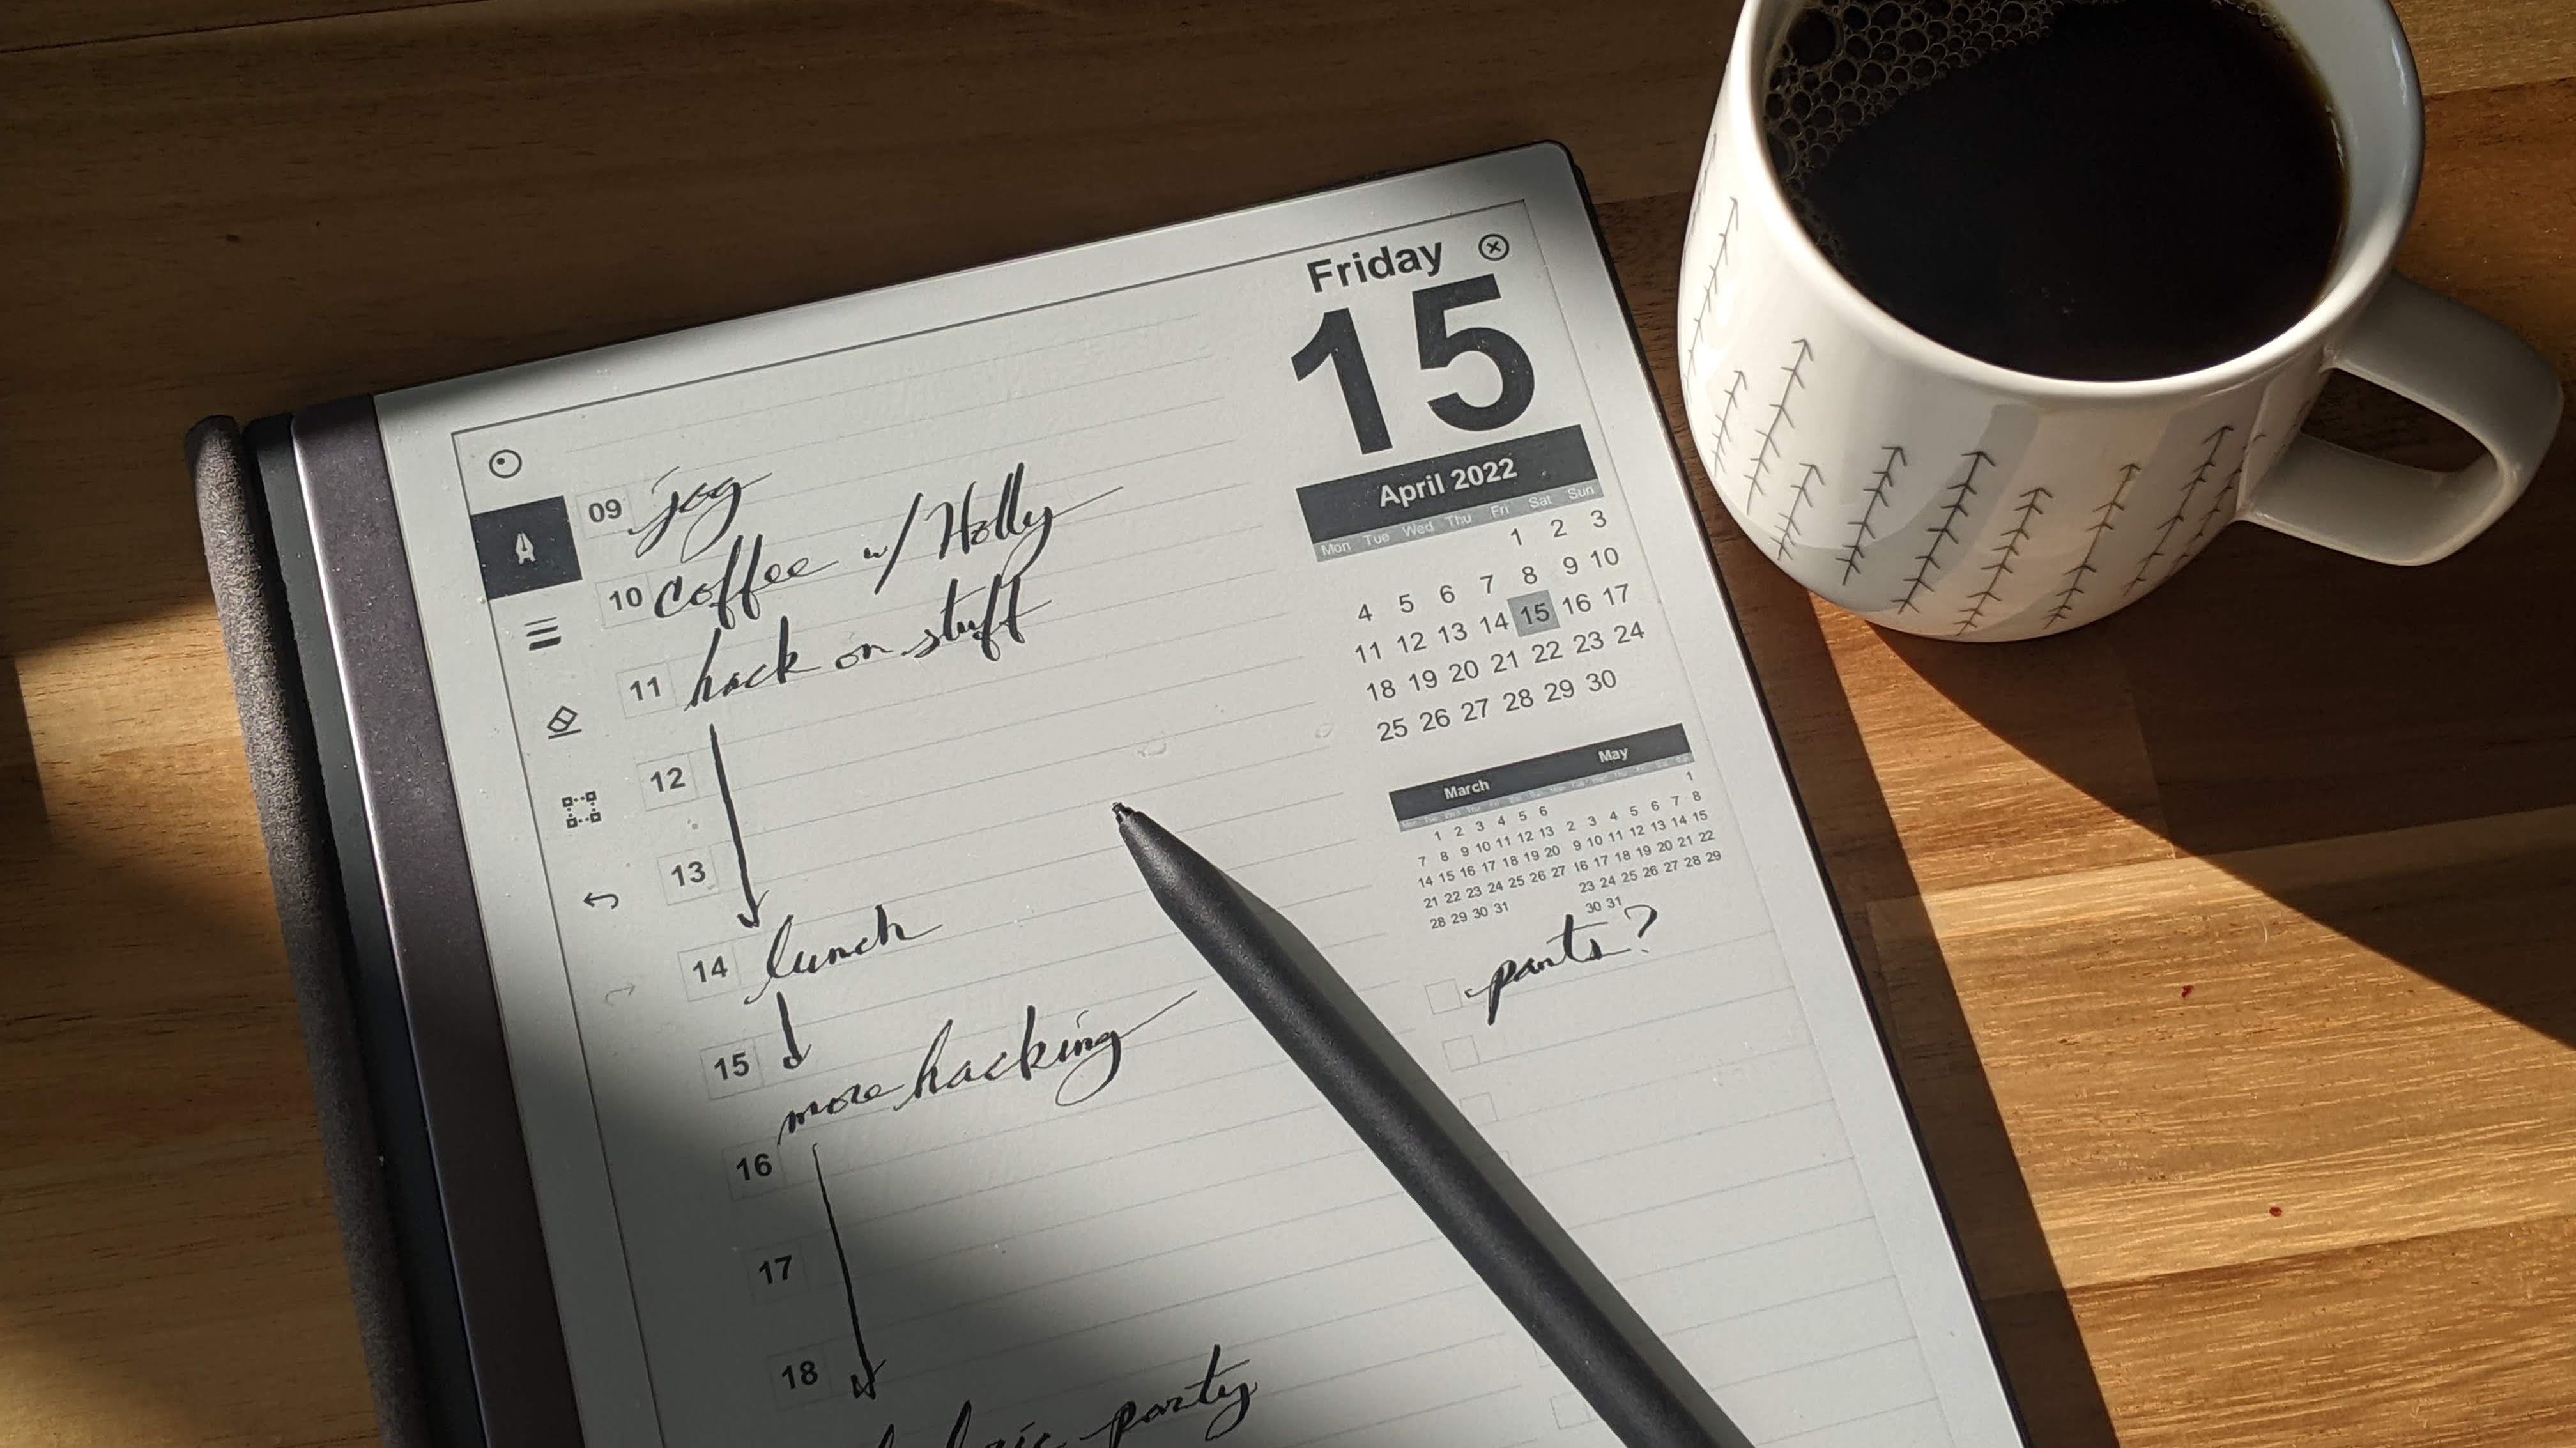 Friday
15
April 2022
Mon Tue Wed Thu Fri Sat Sun
1 2 3
4 5 6 7 8 9 10
11 12 13 14 15 16 17
18 19 20 21 22 23 24
25 26 27 28 29 30
March May
1 2 3 4 5 6
7 8 9 10 11 12 13
14 15 16 17 18 19 20
21 22 23 24 25 26 27
28 29 30 31
1
2 3 4 5 6 7 8
9 10 11 12 13 14 15
16 17 18 19 20 21 22
23 24 25 26 27 28 29
30 31
09 jog
10 coffee w/ Holly
11 hack on stuff
12
13
14 lunch
15
more hacking
16
17
18
party
pants?